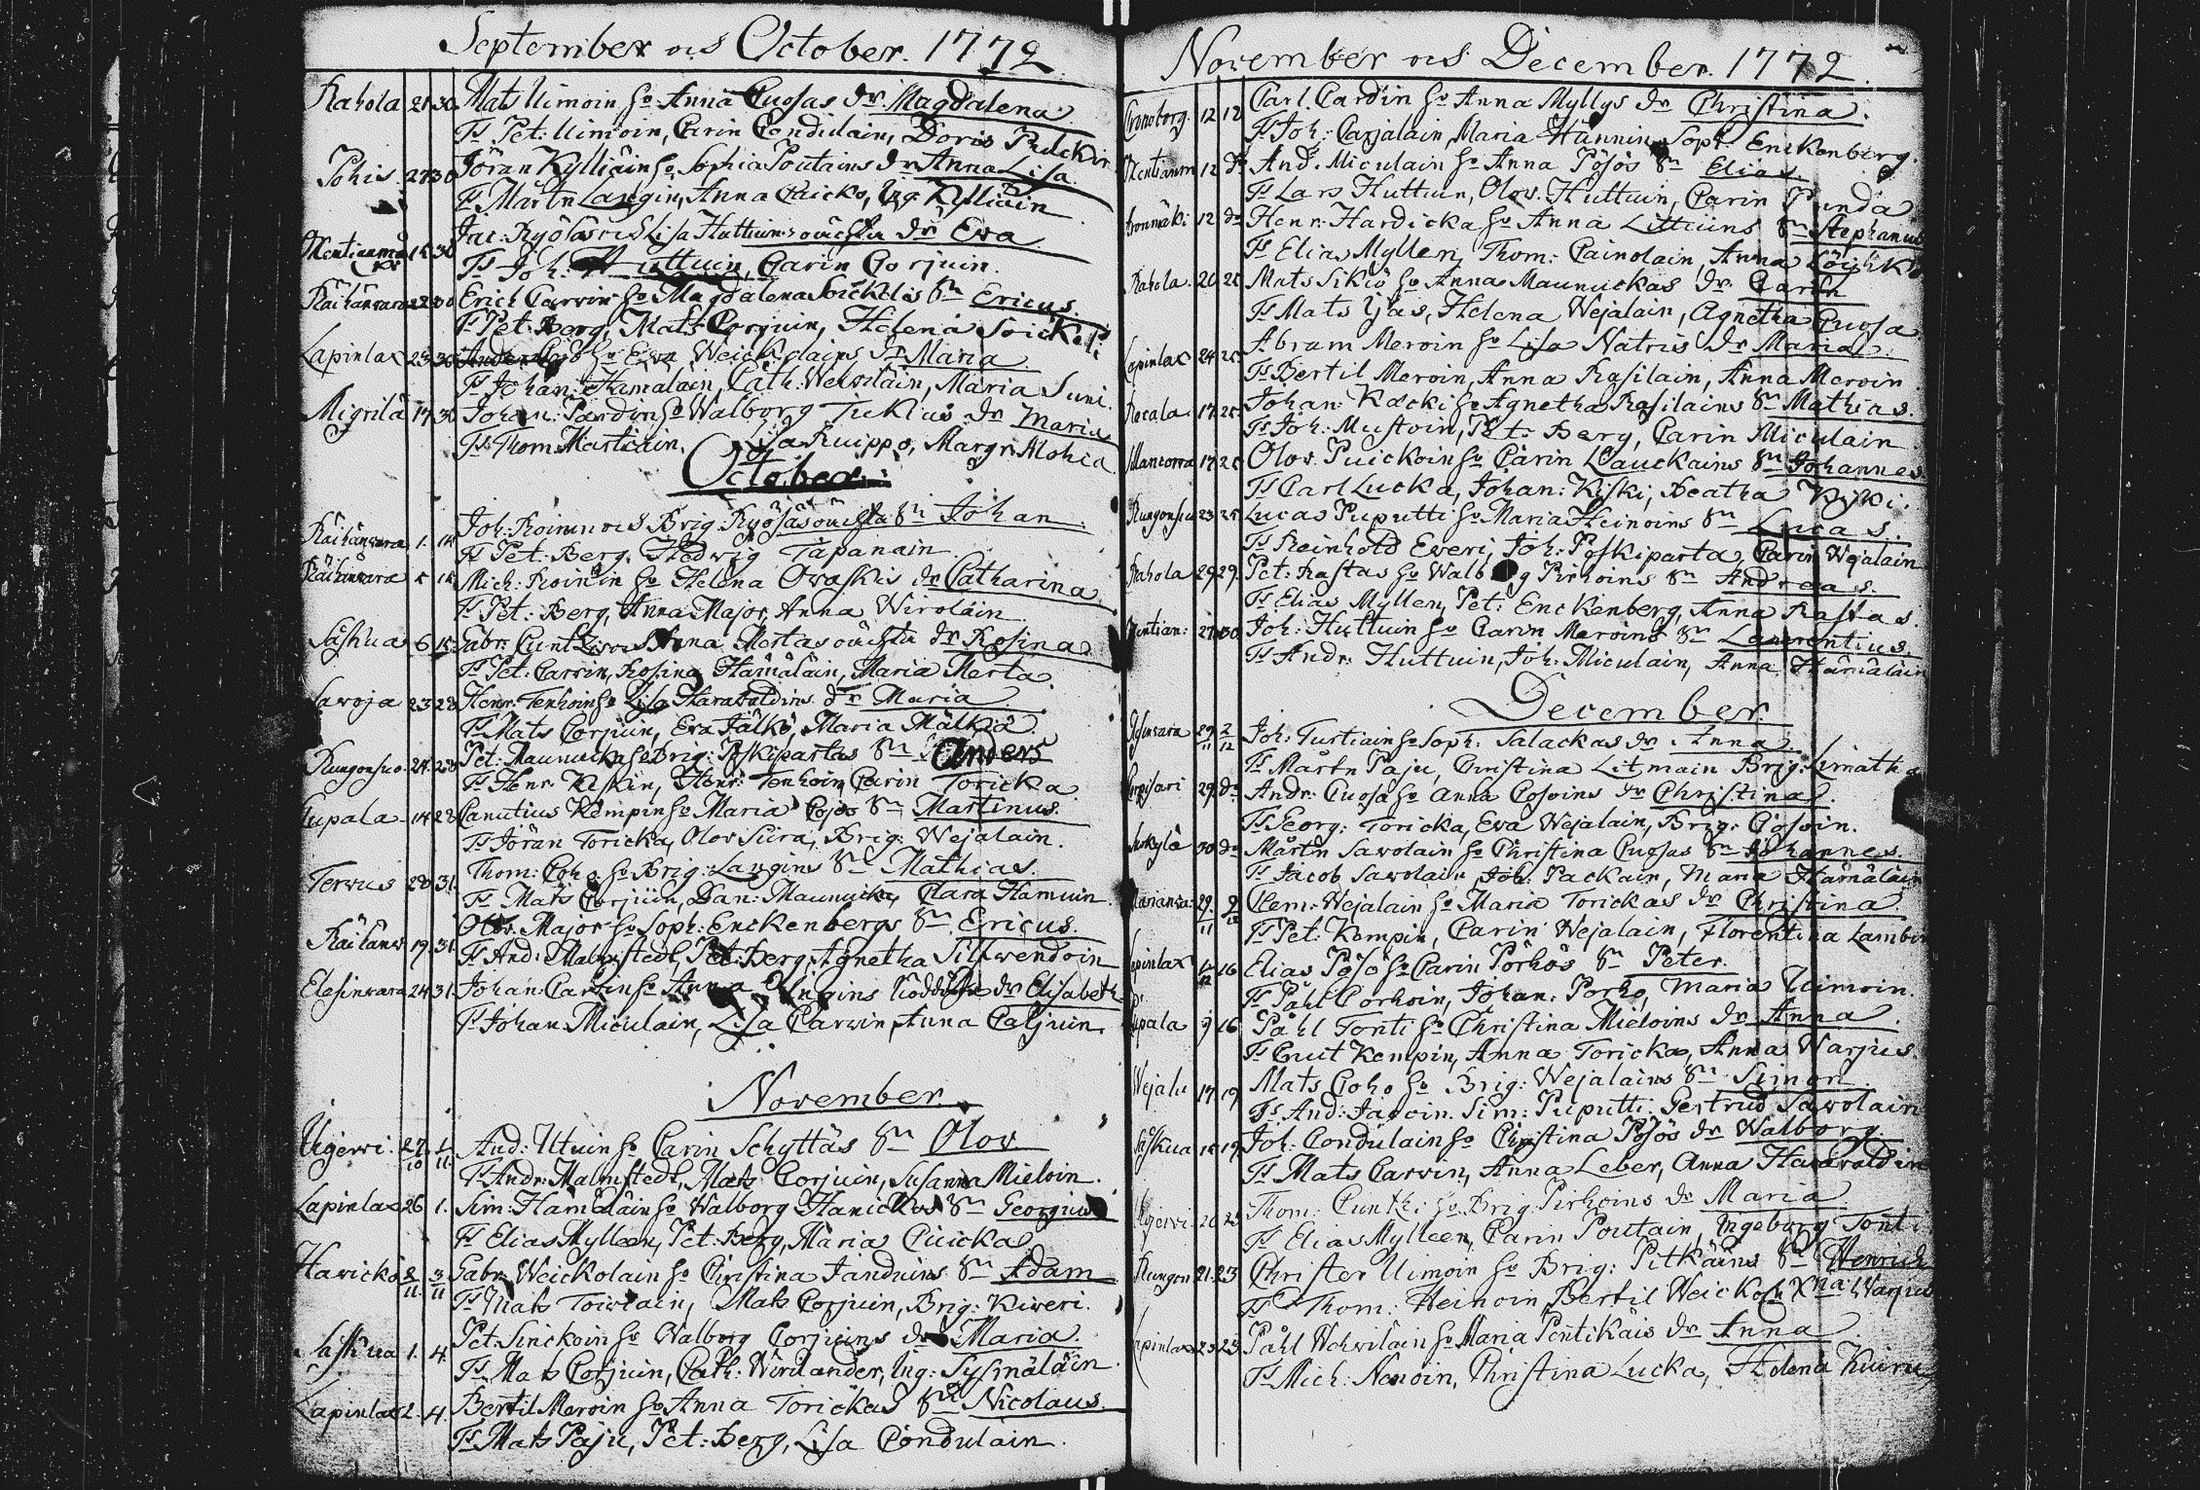 September och October. 1772.
Rahola 21 30 Mats Uimoin hu Anna Cuosas dr Magdalena
Ts Pet: Uimoin, Carin Condulain, Doris
Pohis 27 30 Jöran Kylliäin hu Sophia Poutains dr Anna Lisa.
Ts Mårtn Langin, Anna Cuicka, Ing: Kylliäin
Jac: Ryösa och Lisa Huttuin: oächta dr Eva
Ts Joh: Huttuin, Carin Corjuin.
Räihänvara 22 30 Erich Carvin hu Magdalena Soickelis Sn Ericus.
Ts Pet: Berg, Mats Corjuin, Helena Soickeli
Lapinlax 23 30 hu Eva Weickolains dr Maria
Ts Johan: Hamalain, Cath: Wewiläin, Maria Suni.
Migrilä 17 30 Johan: Pardin hu Walborg Tickius dr Maria
Ts Thom: Martiain, Lisa Kuippo, Margr: Mohia
October.
Räihänvara 1. Joh: Roinin och Brig: Ryösäs oächta Sn Johan.
Ts Pet: Berg, Hedwig Tapanain.
Räihänvara Mich: Roinin hu Helena Oraskis dr Catharina
Ts Pet: Berg, Anna Major, Anna Wirolain
Säskua 6 Gabr: Cuntzi och Anna Mertas oächta dr Rosina.
Ts Pet: Carvin, Rosina Hämäläin, Maria Merta.
Savoja 23 28 Henr: Tenhoin hu Lisa Haravaldins dr Maria
Ts Mats Corjuin, Eva Jälkö, Maria Mälkiä.
Kungonsuo 24 28 Pet: Maunucka hu Brig: Poskipartas Sn Anders
Ts Henr: Kiskin, Henr: Tenhoin, Carin Toricka
Cupala 14 28 Canutius Kempin hu Maria Cojos Sn Martinus.
Ts Jöran Toricka, Olov Siira, Brig: Wejalain.
Tervus 28 31. Thom: Coho hu Brig: Langins Sn Mathias.
Ts Mats Corjuin, Dan: Maunucka, Clara Hamuin.
Räihänv 19. 31. Olov Major hu Soph: Enckenbergs Sn Ericus.
Ts And: Malmstedt, Pet: Berg, Agnetha Silfwendoin
Elesinvara 24 31. Johan: Carvin hu Anna dr Elisabeth
Ts Johan Miculain, Lisa Carvin, Anna Caljuin.
November.
Uigervi. 27/10 1/11. And: Utuin hu Carin Schyttäs Sn Olov
Ts Andr: Malmstedt, Mats Corjuin, Susanna Mieloin.
Lapinlax 26 1. Sim: Hämäläin hu Walborg Hanickas Sn Georgius
Ts Elias Mylleen, Pet: Berg, Maria Cuicka
Haricko 2/11 3/11 Gabr: Weickolain hu Christina Janduins Sn Adam
Ts Mats Toiviain, Mats Corjuin, Brig: Kiveri.
Säskua 1. 4. Pet: Sinckoin hu Walborg Corjuins dr Maria.
Ts Mats Corjuin, Cath: Wirilander, Ing: Sysmäläin.
Lapinlax 2. 4. Bertil Meroin hu Anna Torickas Sn Nicolaus.
Ts Mats Paju, Pet: Berg, Lisa Condulain.
November och December. 1772.
Cronoborg. 12 12 Carl Cardin hu Anna Myllys dr Christina.
Ts Joh: Carjalain, Maria Hänninen, Soph: Enckenberg.
12 do And: Miculain hu Anna Pösös Sn Elias.
Ts Lars Huttuin, Olov Huttuin, Carin Punda
12 do Henr: Hardicka hu Anna Littiüns Sn Stephanus
Ts Elias Myllen, Thom: Cainolain, Anna
Rahola. 20 25 Mats Sikiö hu Anna Maunuckas dr Carin
Ts Mats Ijäs, Helena Wejalain, Agnetha Cuosa
Lapinlax 24 25 Abram Meroin hu Lisa Natris dr Maria.
Ts Bertil Meroin, Anna Rasilain, Anna Meroin
Recala 17. 25. Johan: Kæcki hu Agnetha Rasilains Sn Mathias.
Ts Joh: Mustoin, Pet: Berg, Carin Miculain
17. 25 Olov Puickoin hu Carin Lauckains Sn Johannes
Ts Carl Lucka, Johan: Kiski, Beatha Kiski.
Kungonsuo 23 25 Lucas Puputti hu Maria Heinoins Sn Lucas.
Ts Reinhold Everi, Joh: Poskiparta, Carin Wejalain
Rahola 29. 29. Pet: Rastas hu Walborg Pirhoins Sn Andreas.
Ts Elias Myllen, Pet: Enckenberg, Anna Rastas.
27. 30 Joh: Huttuin hu Carin Meroins Sn Laurentius.
Ts Andr: Huttuin, Joh: Miculain, Anna Hämäläin
December.
29/11 2/12 Joh: Turtiain hu Soph: Salackas dr Anna
Ts Mårtn Paju, Christina Litmain Brig: Limatha
Corpisari 29. do Andr: Cuosa hu Anna Cosoins dr Christina.
Ts Georg: Toricka, Eva Wejalain, Brig: Cosoin.
30 do Mårtn Savolain hu Christina Cuosas Sn Johannes.
Ts Jacob Savolain, Joh: Packain, Maria Hämäläin
29/11 9/12 Clem: Wejalain hu Maria Torickas dr Christina
Ts Pet: Kempin, Carin Wejalain, Florentina Lambin
Lapinlax 16 Elias Pösö hu Carin Pörhös Sn Peter.
Ts Påhl Corhoin, Johan: Porho, Maria Uimoin.
Cupala 9 16 Påhl Tonti hu Christina Mieloins dr Anna.
Ts Cnut Kempin, Anna Toricka, Anna Warjus.
Wejala 17 19 Mats Coho hu Brig: Wejalains Sn Simon
Ts And: Jaeoin. Sim: Puputti. Gertrud Savolain
Säskua 19 Joh: Condulain hu Christina Pösös dr Walborg.
Ts Mats Carvin, Anna Leber, Anna Haravaldin
Thom: Cuntzi hu Brig: Pirhoins dr Maria
Ts Elias Mylleen, Carin Poutain, Ingeborg Tonti
Kungon 21. 23 Christer Uimoin hu Brig: Pitkäins Sn Henrich
Ts Thom: Heinoin, Bertil Weickol: Xna Warjus
Lapinlax 23 Påhl Wehvilain hu Maria Pentikäis dr Anna
Ts Mich: Nenoin, Christina Lucka, Helena Kuiru